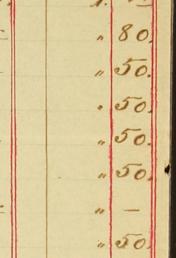 " 80.
" 50.
" 50.
" 50.
" 50.
" —
" 50.